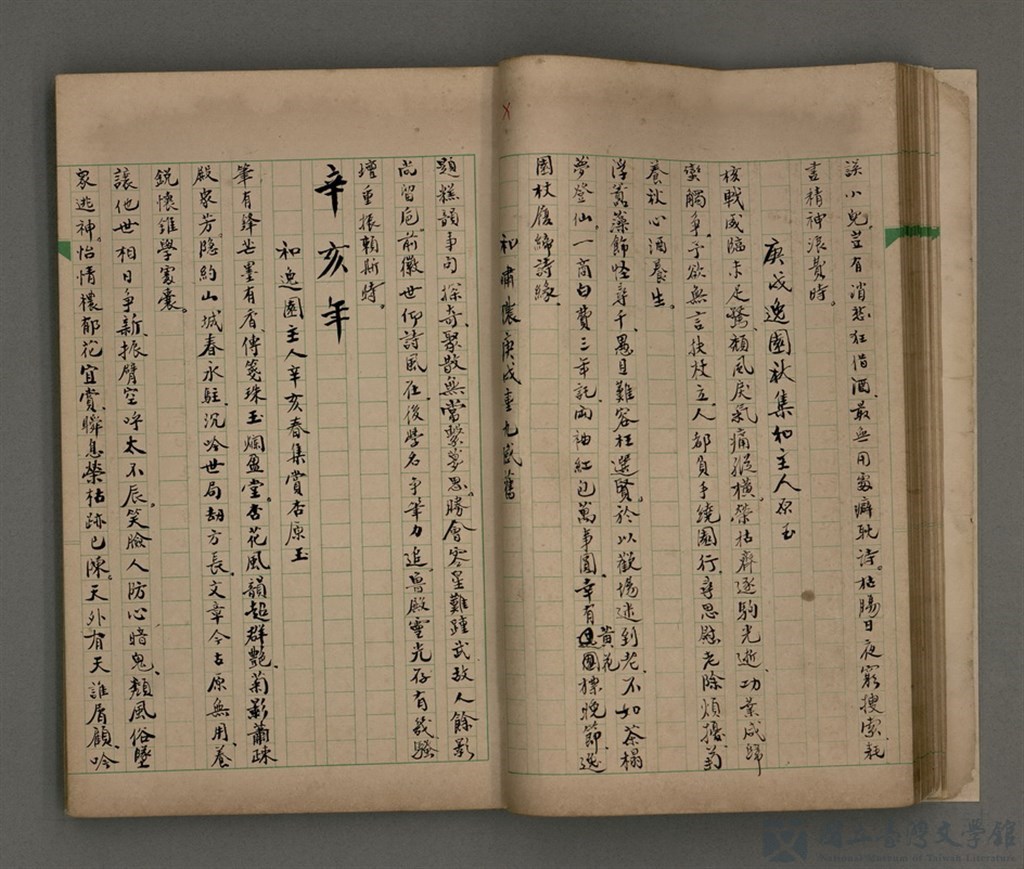 誤小兒。豈有消愁狂借酒、最無用處癖耽詩。枯腸日夜窮搜索、耗
盡精神浪費時。
庚戌逸園秋集和主人原玉
核戰威臨未足驚、頹風戾氣痛縱橫。榮枯齊逐駒光逝、功業咸歸
蠻觸爭。予欲無言扶杖立、人都負手繞園行。尋思慰老除煩擾、菊
養秋心酒養生。
浮蓂藻飾怪尋千、愚目難容枉選賢。於以歡場迷到老、不如茶榻
夢登仙。一商白費三年託、兩袖紅包萬事圓。幸有黃花標晚節、逸
園杖履締詩緣。
和嘯儂庚戌重九感舊
題糕韻事句探奇、聚散無常繫夢思。勝會零星難踵武、故人餘影
尚留卮。前徽世仰詩風在、後學名爭筆力追。魯殿靈光存有幾、騷
壇重振賴斯時。
辛亥年
和逸園主人辛亥春集賞杏原玉
筆有鋒芒墨有香、傳箋珠玉爛盈堂。杏花風韻超群艷、菊影蕭疎
殿眾芳。隱約山城春永駐、沉吟世局劫方長。文章今古原無用、養
銳懷錐學處囊。
讓他世相日爭新、振臂空呼太不辰。笑臉人防心暗鬼、頹風俗墜
眾逃神。怡情穠郁花宜賞、瞬息榮枯跡已陳。天外有天誰眉顧、吟
國立臺灣文學館
National Museum of Taiwan Literature